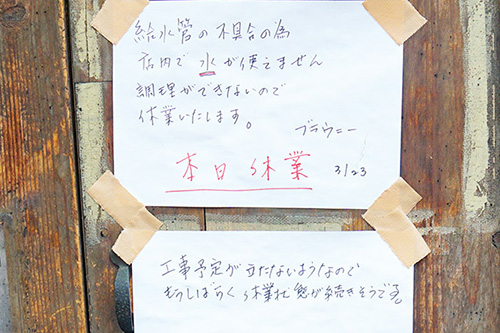 給水管の不具合の為
店内で水が使えません
調理ができないので
休業いたします。
ブラウニー
本日休業 3/23
工事予定が立たないようなので
もうしばらく休業状態が続きそうです